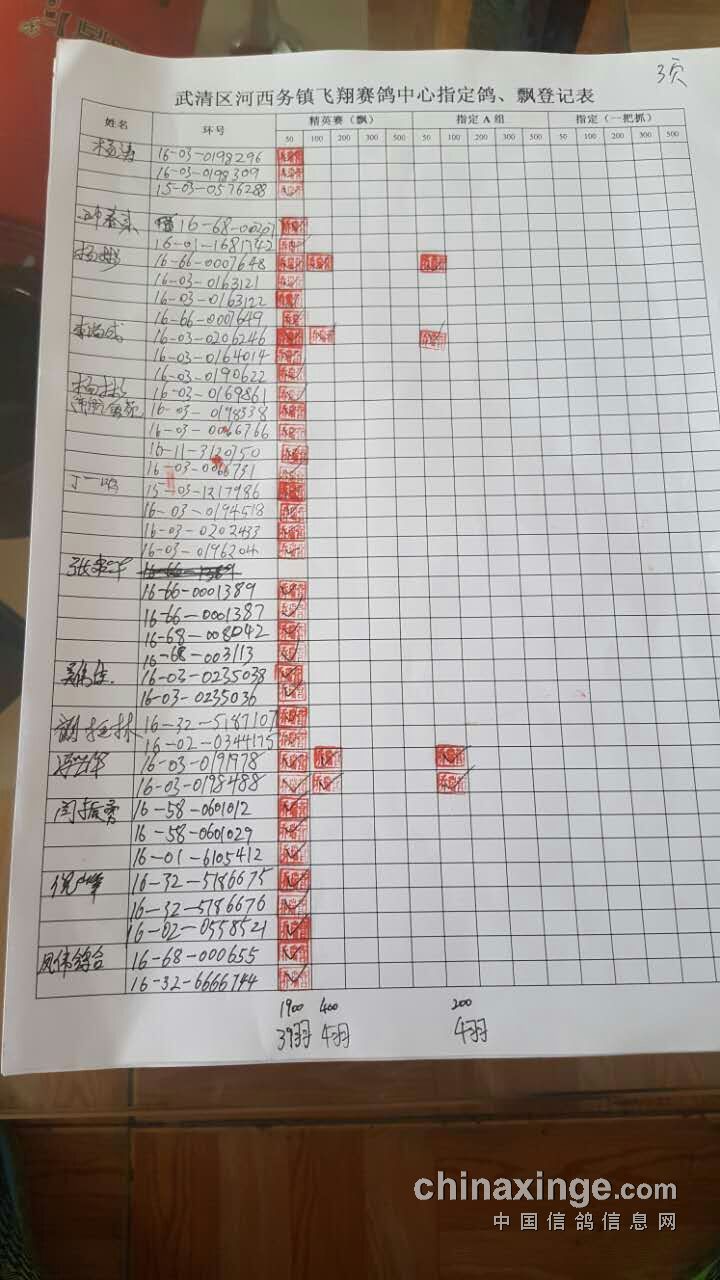 3页
武清区河西务镇飞翔赛鸽中心指定鸽、飘登记表
姓名 环号 精英赛（飘） 指定 A 组 指定（一把抓）
50 100 200 300 500 50 100 200 300 500 50 100 200 300 500
杨涛 16-03-0198296
16-03-0198309
15-03-0576288
16-68-00207
16-01-1681742
16-66-0007648
16-03-0163121
16-03-0163122
16-66-0001649
16-03-0206246
16-03-0164014
16-03-0190622
16-03-0169861
16-03-0198338
16-03-0066766
16-11-3120750
16-03-0066731
丁一鸣 15-03-1217986
16-03-0194518
16-03-0202433
16-03-0196204
16-66-0001389
16-66-0001387
16-68-008042
16-68-003113
16-03-0235038
16-03-0235036
16-32-5187107
16-02-0344175
16-03-0191978
16-03-0198488
闫振勇 16-58-0601012
16-58-0601029
16-01-6105412
倪峰 16-32-5186675
16-32-5186676
16-02-0558521
凤伟鸽舍 16-68-000655
16-32-6666744
1900 400 200
39羽 4羽 4羽
chinaxinge.com
中国信鸽信息网